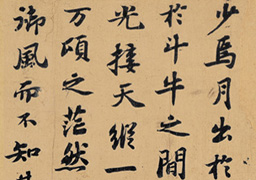 少焉月出於
於斗牛之間
光接天縱一
万頃之茫然
御風而不知